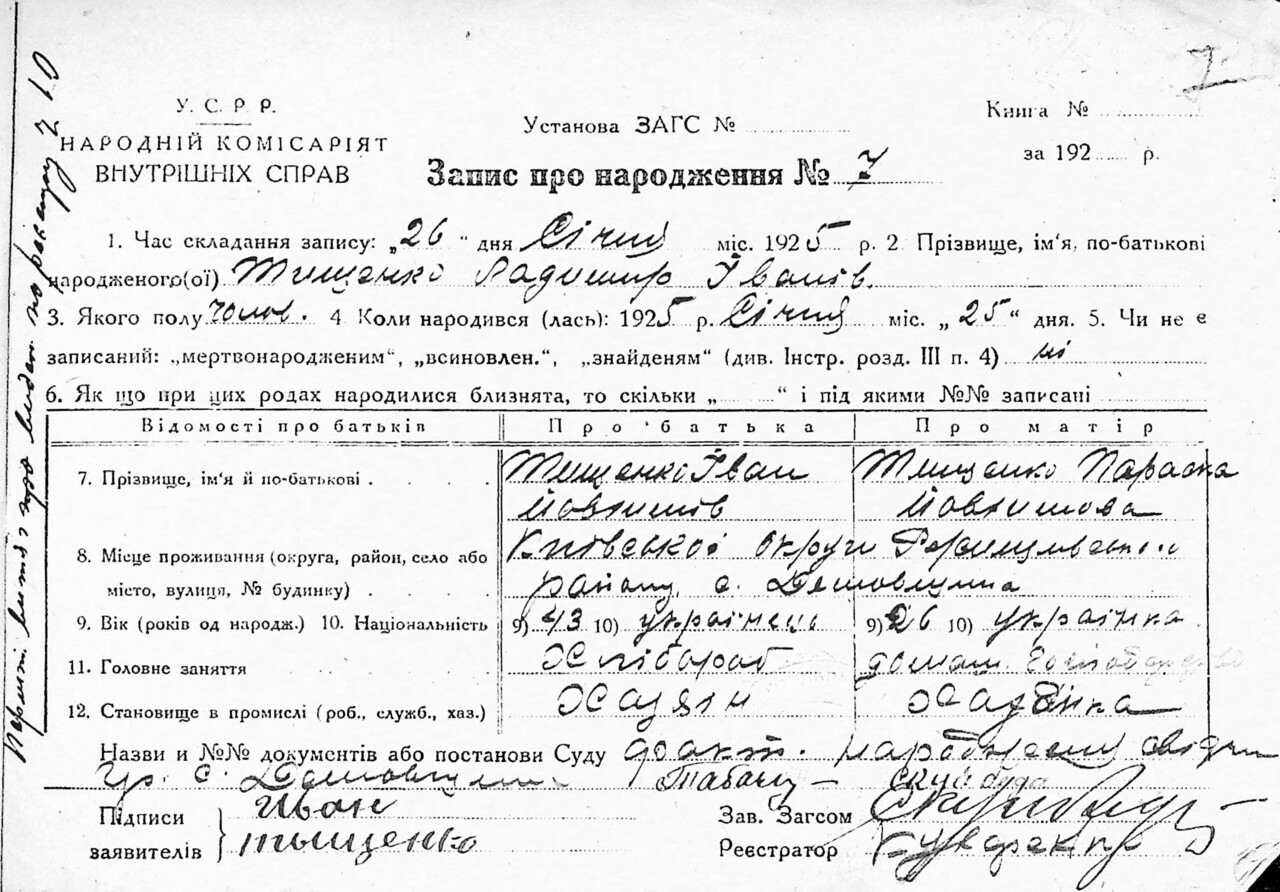 7
У. С. Р. Р.
НАРОДНІЙ КОМІСАРІЯТ
ВНУТРІШНІХ СПРАВ
Установа ЗАГС №
Книга №
за 192 р.
Запис про народження № 7
1. Час складання запису: „26“ дня Січня міс. 1925 р. 2. Прізвище, ім'я, по-батькові
народженого(ої) Тищенко Іванів.
3. Якого полу чолов. 4. Коли народився (лась): 1925 р. Січня міс. „25“ дня. 5. Чи не є
записаний: „мертвонародженим“, „всиновлен.“, „знайденям“ (див. Інстр. розд. III п. 4) ні
6. Як що при цих родах народилися близнята, то скільки „ “ і під якими №№ записані
Відомості про батьків Про батька Про матір
7. Прізвище, ім'я й по-батькові Тищенко Іван Тищенко Параска
Йовхимів Йовхимова
8. Місце проживання (округа, район, село або Київської округи
місто, вулиця, № будинку) району, с.
9. Вік (років од народж.) 10. Національність 9) 43 10) українець 9) 26 10) українка
11. Головне заняття Хлібороб домаш.
12. Становище в промислі (роб., служб., хаз.) Хазяїн Хазяйка
Назви и №№ документів або постанови Суду факт. народження
гр. с.
Підписи заявителів Иван
тыщенко
Зав. Загсом
Реєстратор